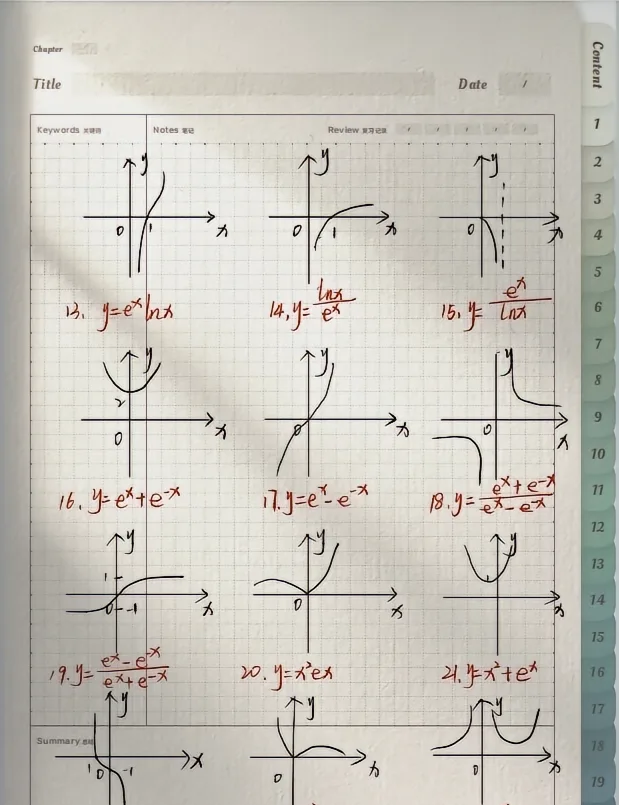 Chapter
Title Date /
Content
Keywords 关键词 Notes 笔记 Review 复习记录 / / / / /
1
2
3
4
5
6
7
8
9
10
11
12
13
14
15
16
17
18
19
y y y
0 1 x 0 1 x 0 x
13. y=eˣlnx 14. y=lnx/eˣ 15. y=eˣ/lnx
y y y
2 0 x 0 x 0 x
16. y=eˣ+e⁻ˣ 17. y=eˣ-e⁻ˣ 18. y=(eˣ+e⁻ˣ)/(eˣ-e⁻ˣ)
y y y
1 0 -1 x 0 x 1 0 x
19. y=(eˣ-e⁻ˣ)/(eˣ+e⁻ˣ) 20. y=x²ex 21. y=x²+eˣ
y y y
Summary
1 0 -1 x 0 x 0 x